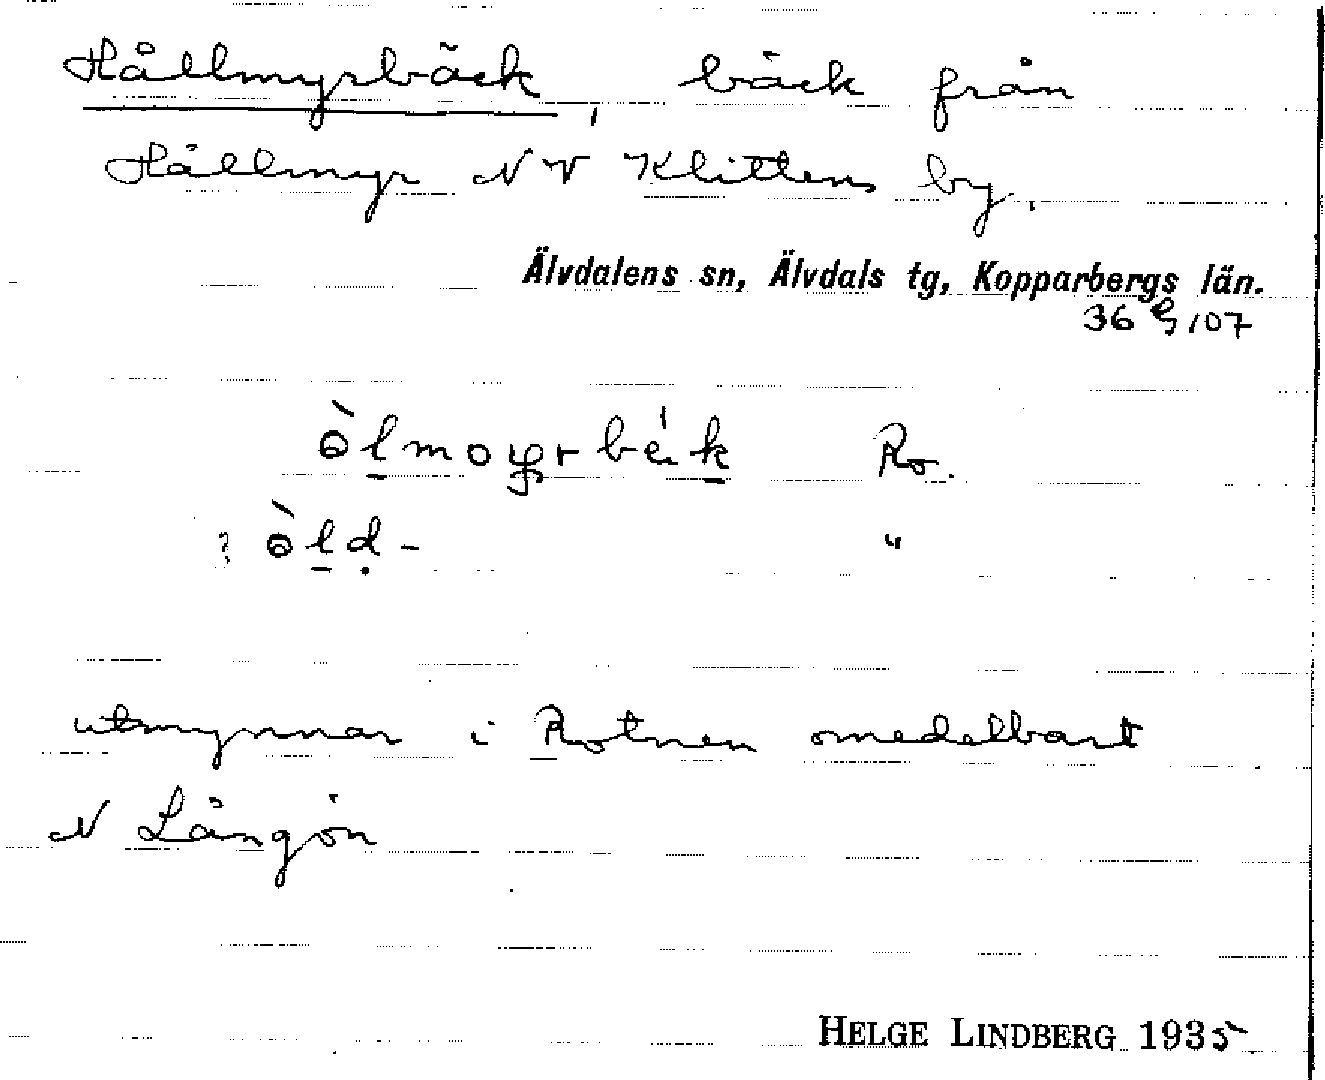 Hållmyrbäck, bäck från
Hållmyr NV Klittens by.
Älvdalens sn, Älvdals tg, Kopparbergs län.
36 G 107
Ro.
? òld-  "
utmynnar i Rotnen omedelbart
N Långön
HELGE LINDBERG 1935